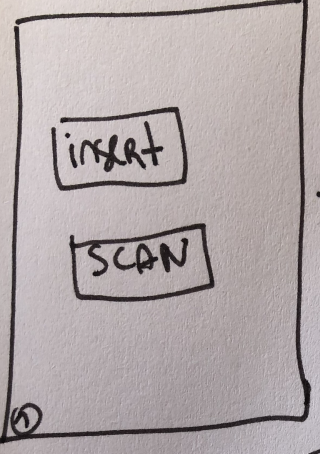 insert
SCAN
1